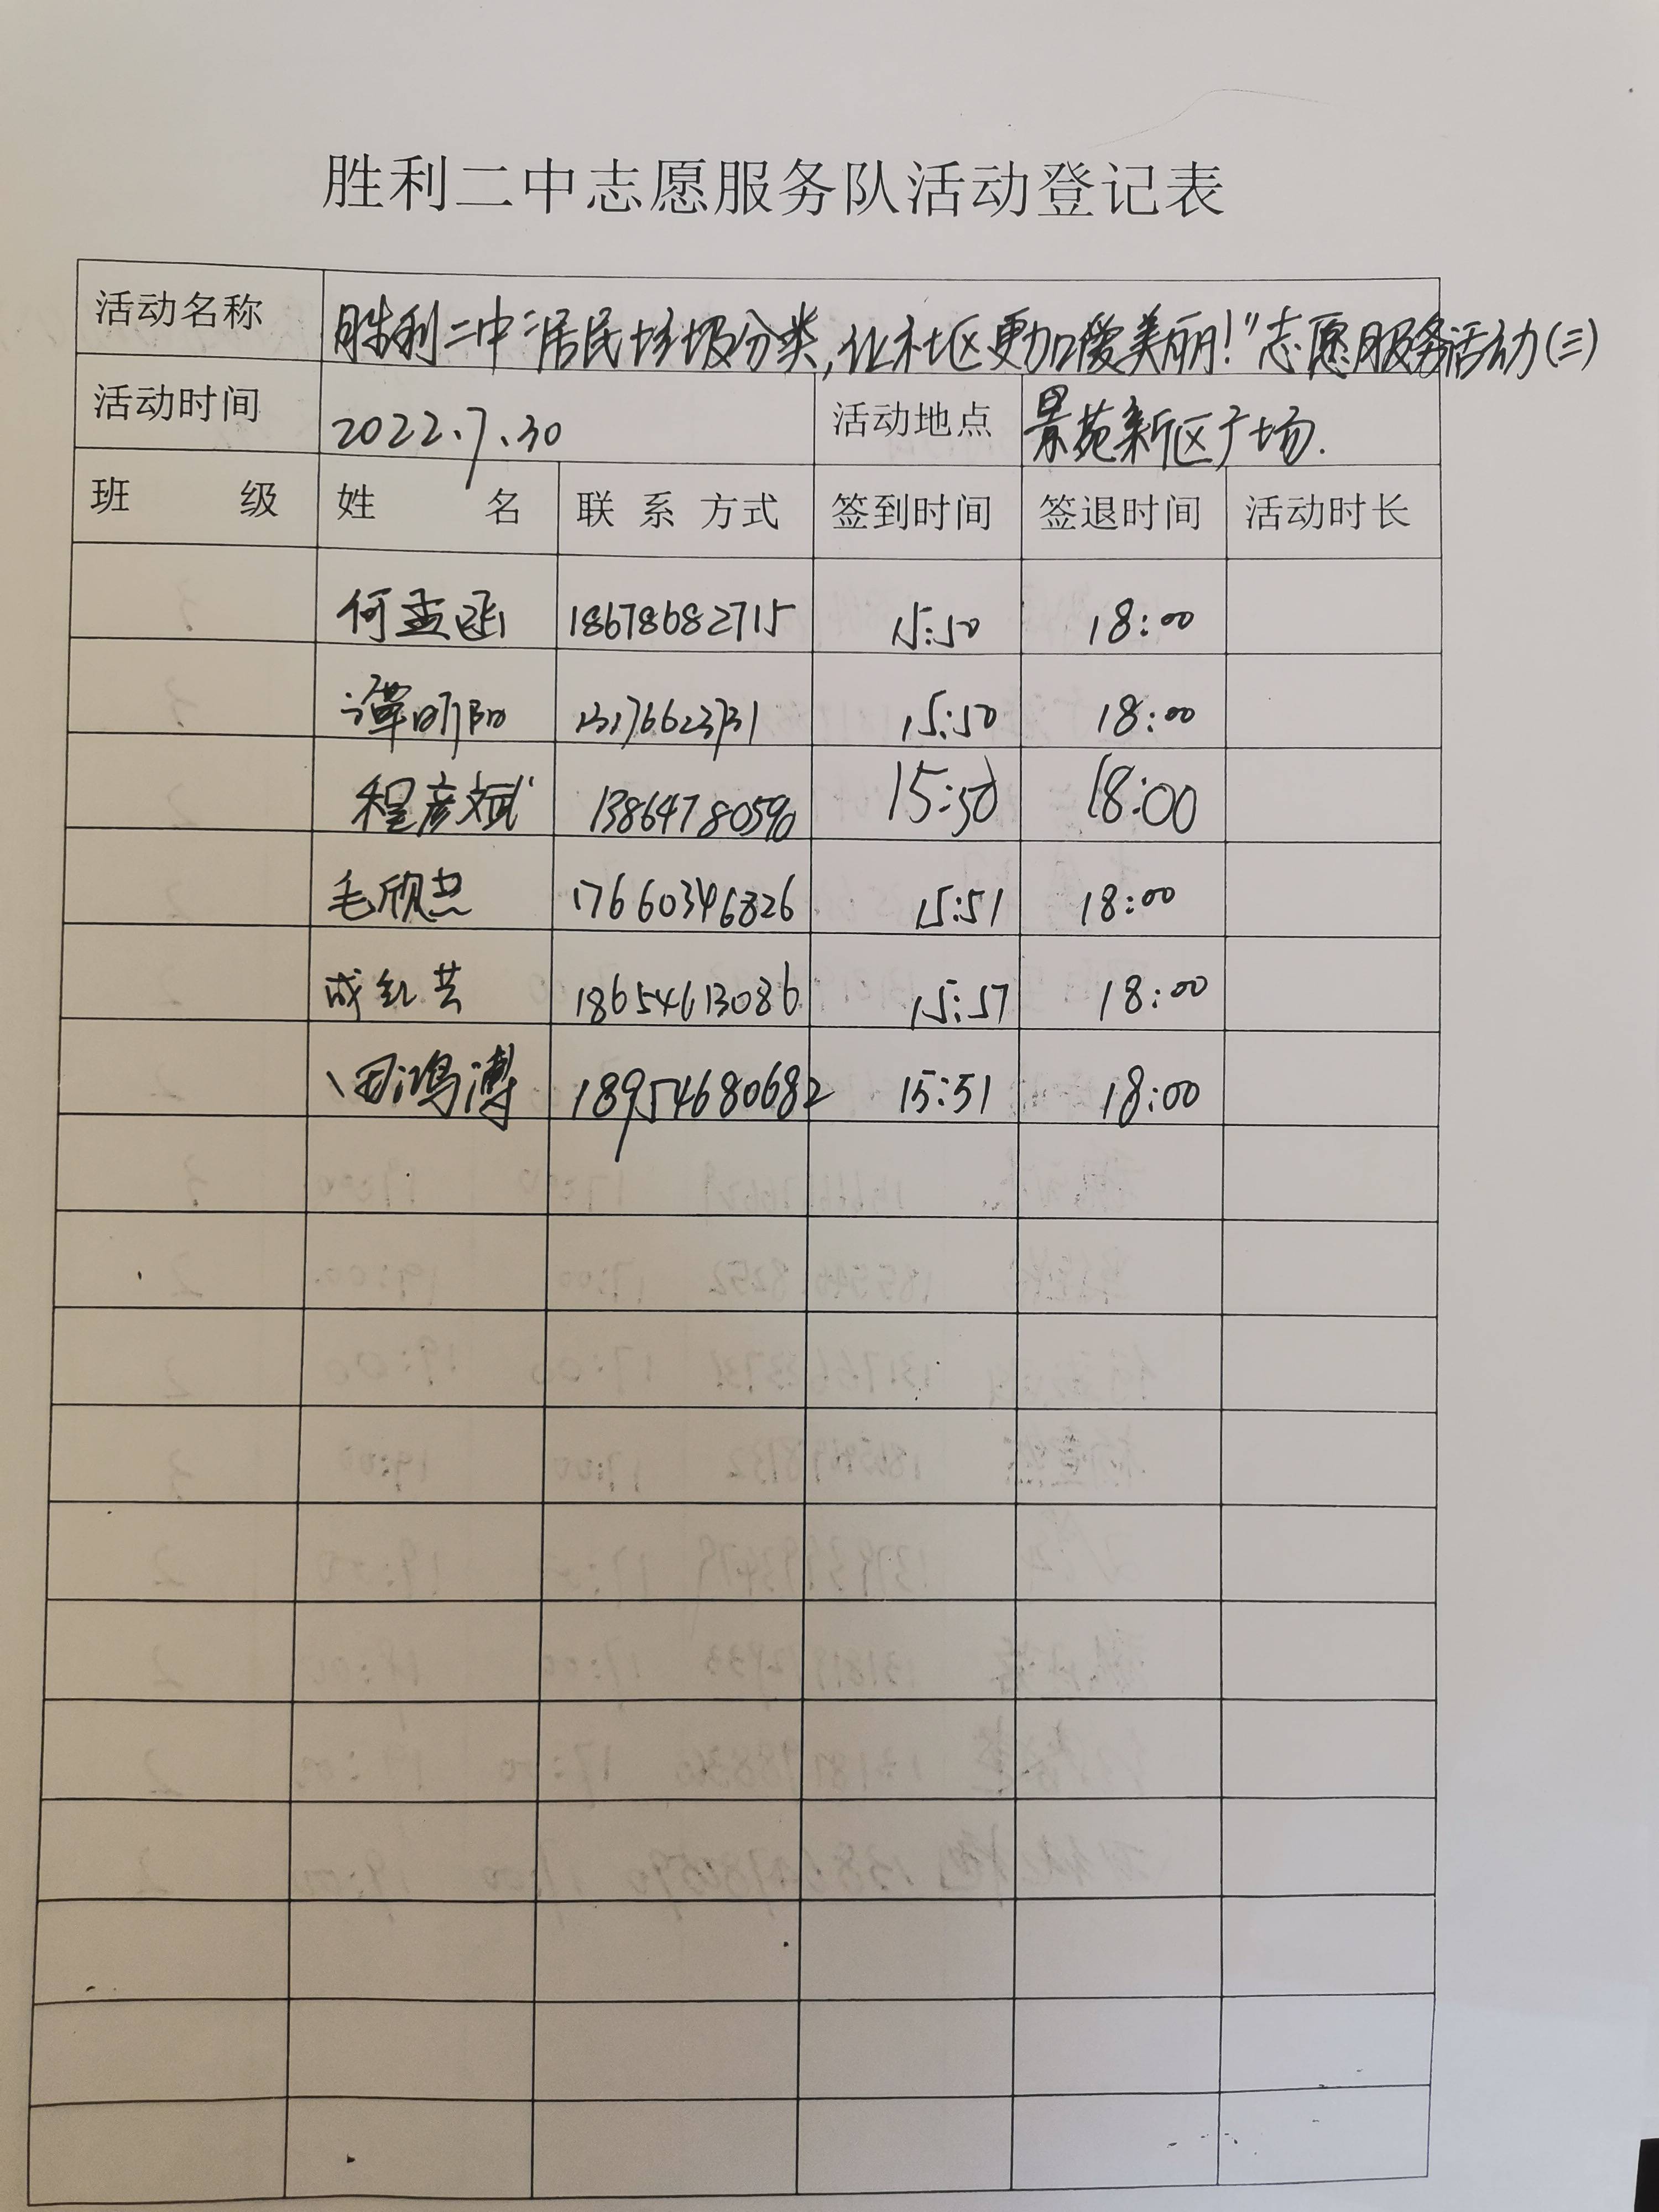 胜利二中志愿服务队活动登记表
活动名称 胜利二中“居民垃圾分类,让社区更加美丽!”志愿服务活动(三)
活动时间 2022.7.30 活动地点 景苑新区广场.
班 级 姓 名 联 系 方式 签到时间 签退时间 活动时长
何孟函 18678682715 15:50 18:00
谭昕阳 13176623731 15:50 18:00
程彦斌 13864780590 15:50 18:00
毛欣 17660346826 15:51 18:00
成 18654613086 15:57 18:00
田鸿溥 18954680682 15:51 18:00